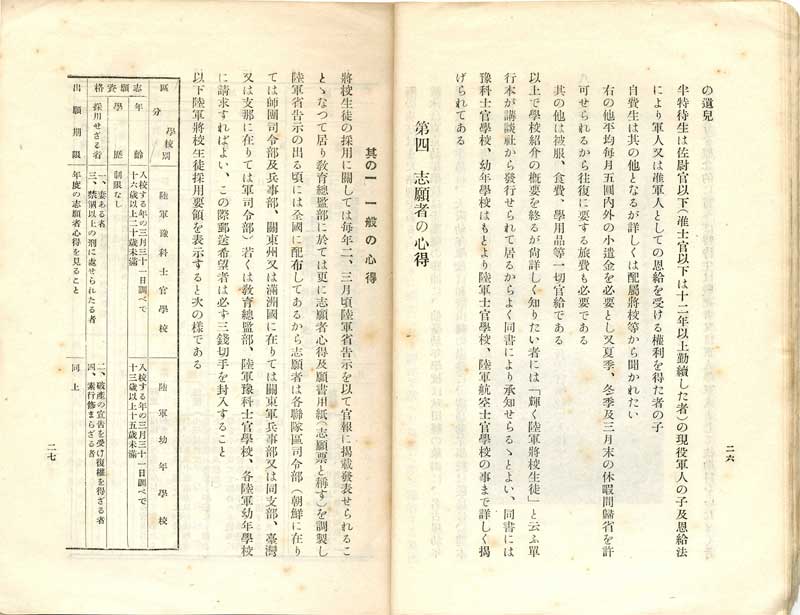 の遺兒
半特待生は佐尉官以下(准士官以下は十二年以上勤續した者)の現役軍人の子及恩給法
により軍人又は準軍人としての恩給を受ける權利を得た者の子
自費生は其の他となるが詳しくは配屬將校等から聞かれたい
右の他平均毎月五圓内外の小遣金を必要とし又夏季、冬季及三月末の休暇間歸省を許
可せられるから往復に要する旅費も必要である
其の他は被服、食費、學用品等一切官給である
以上で學校紹介の概要を終るが尙詳しく知りたい者には「輝く陸軍將校生徒」と云ふ單
行本が講談社から發行せられて居るからよく同書により承知せらるゝとよい、同書には
豫科士官學校、幼年學校はもとより陸軍士官學校、陸軍航空士官學校の事まで詳しく揭
げられてある
第四 志願者の心得
二六
其の一 一般の心得
將校生徒の採用に關しては毎年二、三月頃陸軍省告示を以て官報に揭載發表せられるこ
とゝなつて居り敎育總監部に於ては更に志願者心得及願書用紙(志願票と稱す)を調製し
陸軍省告示の出る頃には全國に配布してあるから志願者は各聯隊區司令部(朝鮮に在り
ては師團司令部及兵事部、關東州又は滿洲國に在りては關東軍兵事部又は同支部、臺灣
又は支那に在りては軍司令部)若くは敎育總監部、陸軍豫科士官學校、各陸軍幼年學校
に請求すればよい、この際郵送希望者は必ず三錢切手を封入すること
以下陸軍將校生徒採用要領を表示すると次の樣である
區分 學校別
陸軍豫科士官學校
陸軍幼年學校
志願資格
年齡
入校する年の三月三十一日調べで
十六歲以上二十歲未滿
入校する年の三月三十一日調べで
十三歲以上十五歲未滿
學歷
制限なし
採用せざる者
一、妻ある者
三、禁錮以上の刑に處せられたる者
二、破產の宣告を受け復權を得ざる者
四、素行修まらざる者
出願期限
年度の志願者心得を見ること
同上
二七